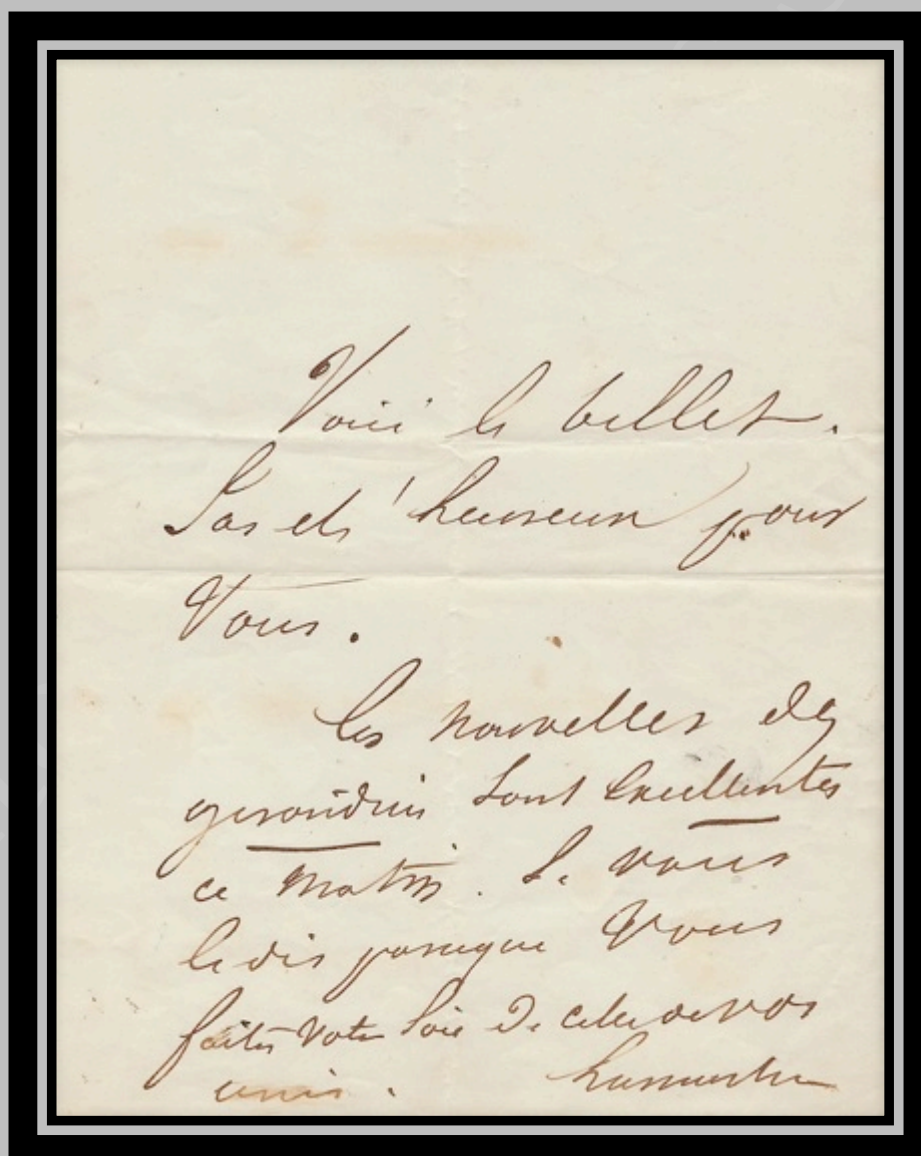 Voici le billet.
Jai été heureux pour
Vous.
Les nouvelles des
girondins sont Excellentes
ce matin. Je vous
le dis parceque Vous
faites votre Joie de celle de vos
amis. Lamartine